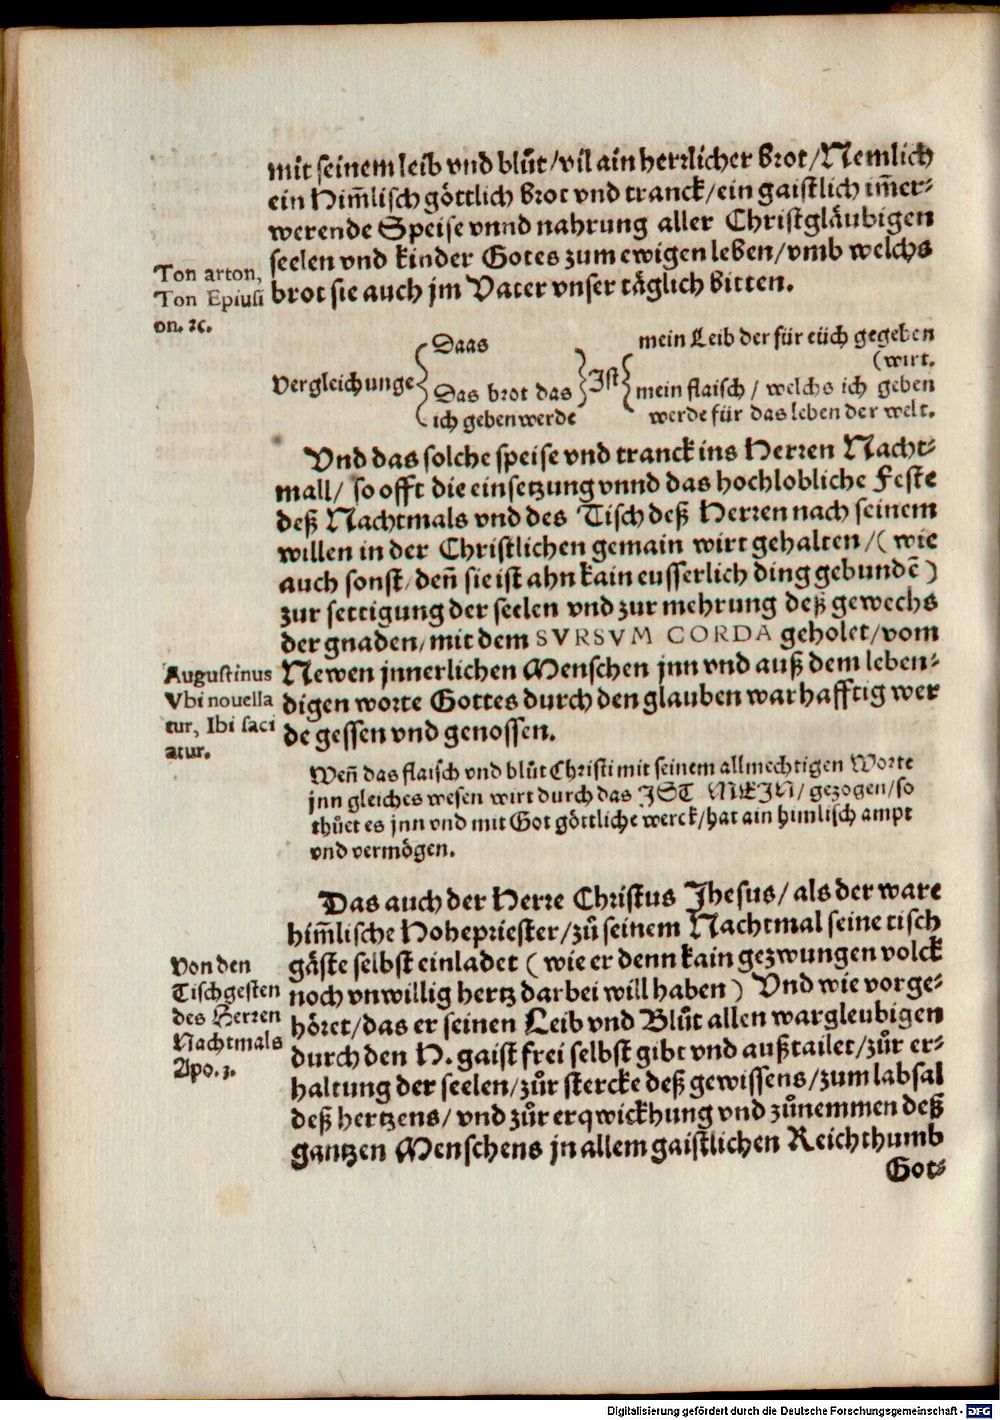 mit seinem leib vnd blůt/vil ain herrlicher brot/Nemlich
ein Him̃lisch göttlich brot vnd tranck/ein gaistlich im̃er-
werende Speise vnnd nahrung aller Christgläubigen
seelen vnd kinder Gotes zum ewigen leben/vmb welchs
brot sie auch jm Vater vnser täglich bitten.
Ton arton,
Ton Epiusi
on. ꝛc.
Daas
mein Leib der für eüch gegeben
(wirt.
Vergleichunge
Ist
Das brot das
mein flaisch / welchs ich geben
ich geben werde
werde für das leben der welt.
Vnd das solche speise vnd tranck ins Herren Nacht-
mall/ so offt die einsetzung vnnd das hochlobliche Feste
deß Nachtmals vnd des Tisch deß Herren nach seinem
willen in der Christlichen gemain wirt gehalten/( wie
auch sonst/deñ sie ist ahn kain eusserlich ding gebundẽ )
zur settigung der seelen vnd zur mehrung deß gewechs
der gnaden/mit dem SVRSVM CORDA geholet/vom
Newen jnnerlichen Menschen jnn vnd auß dem leben-
digen worte Gottes durch den glauben warhafftig wer
de gessen vnd genossen.
Augustinus
Vbi nouella
tur, Ibi saci
atur.
Weñ das flaisch vnd blůt Christi mit seinem allmechtigen Worte
jnn gleiches wesen wirt durch das JST MEJN/ gezogen/so
thůet es jnn vnd mit Got göttliche werck/hat ain himlisch ampt
vnd vermögen.
Das auch der Herre Christus Jhesus/ als der ware
him̃lische Hohepriester/zů seinem Nachtmal seine tisch
gäste selbst einladet ( wie er denn kain gezwungen volck
noch vnwillig hertz darbei will haben ) Vnd wie vorge-
höret/das er seinen Leib vnd Blůt allen wargleubigen
durch den H. gaist frei selbst gibt vnd außtailet/zůr er-
haltung der seelen/zůr stercke deß gewissens/zum labsal
deß hertzens/ vnd zůr erqwickhung vnd zůnemmen deß
gantzen Menschens jn allem gaistlichen Reichthumb
Von den
Tischgesten
des Herren
Nachtmals
Apo. 3.
Got-
Digitalisierung gefördert durch die Deutsche Forschungsgemeinschaft - DFG